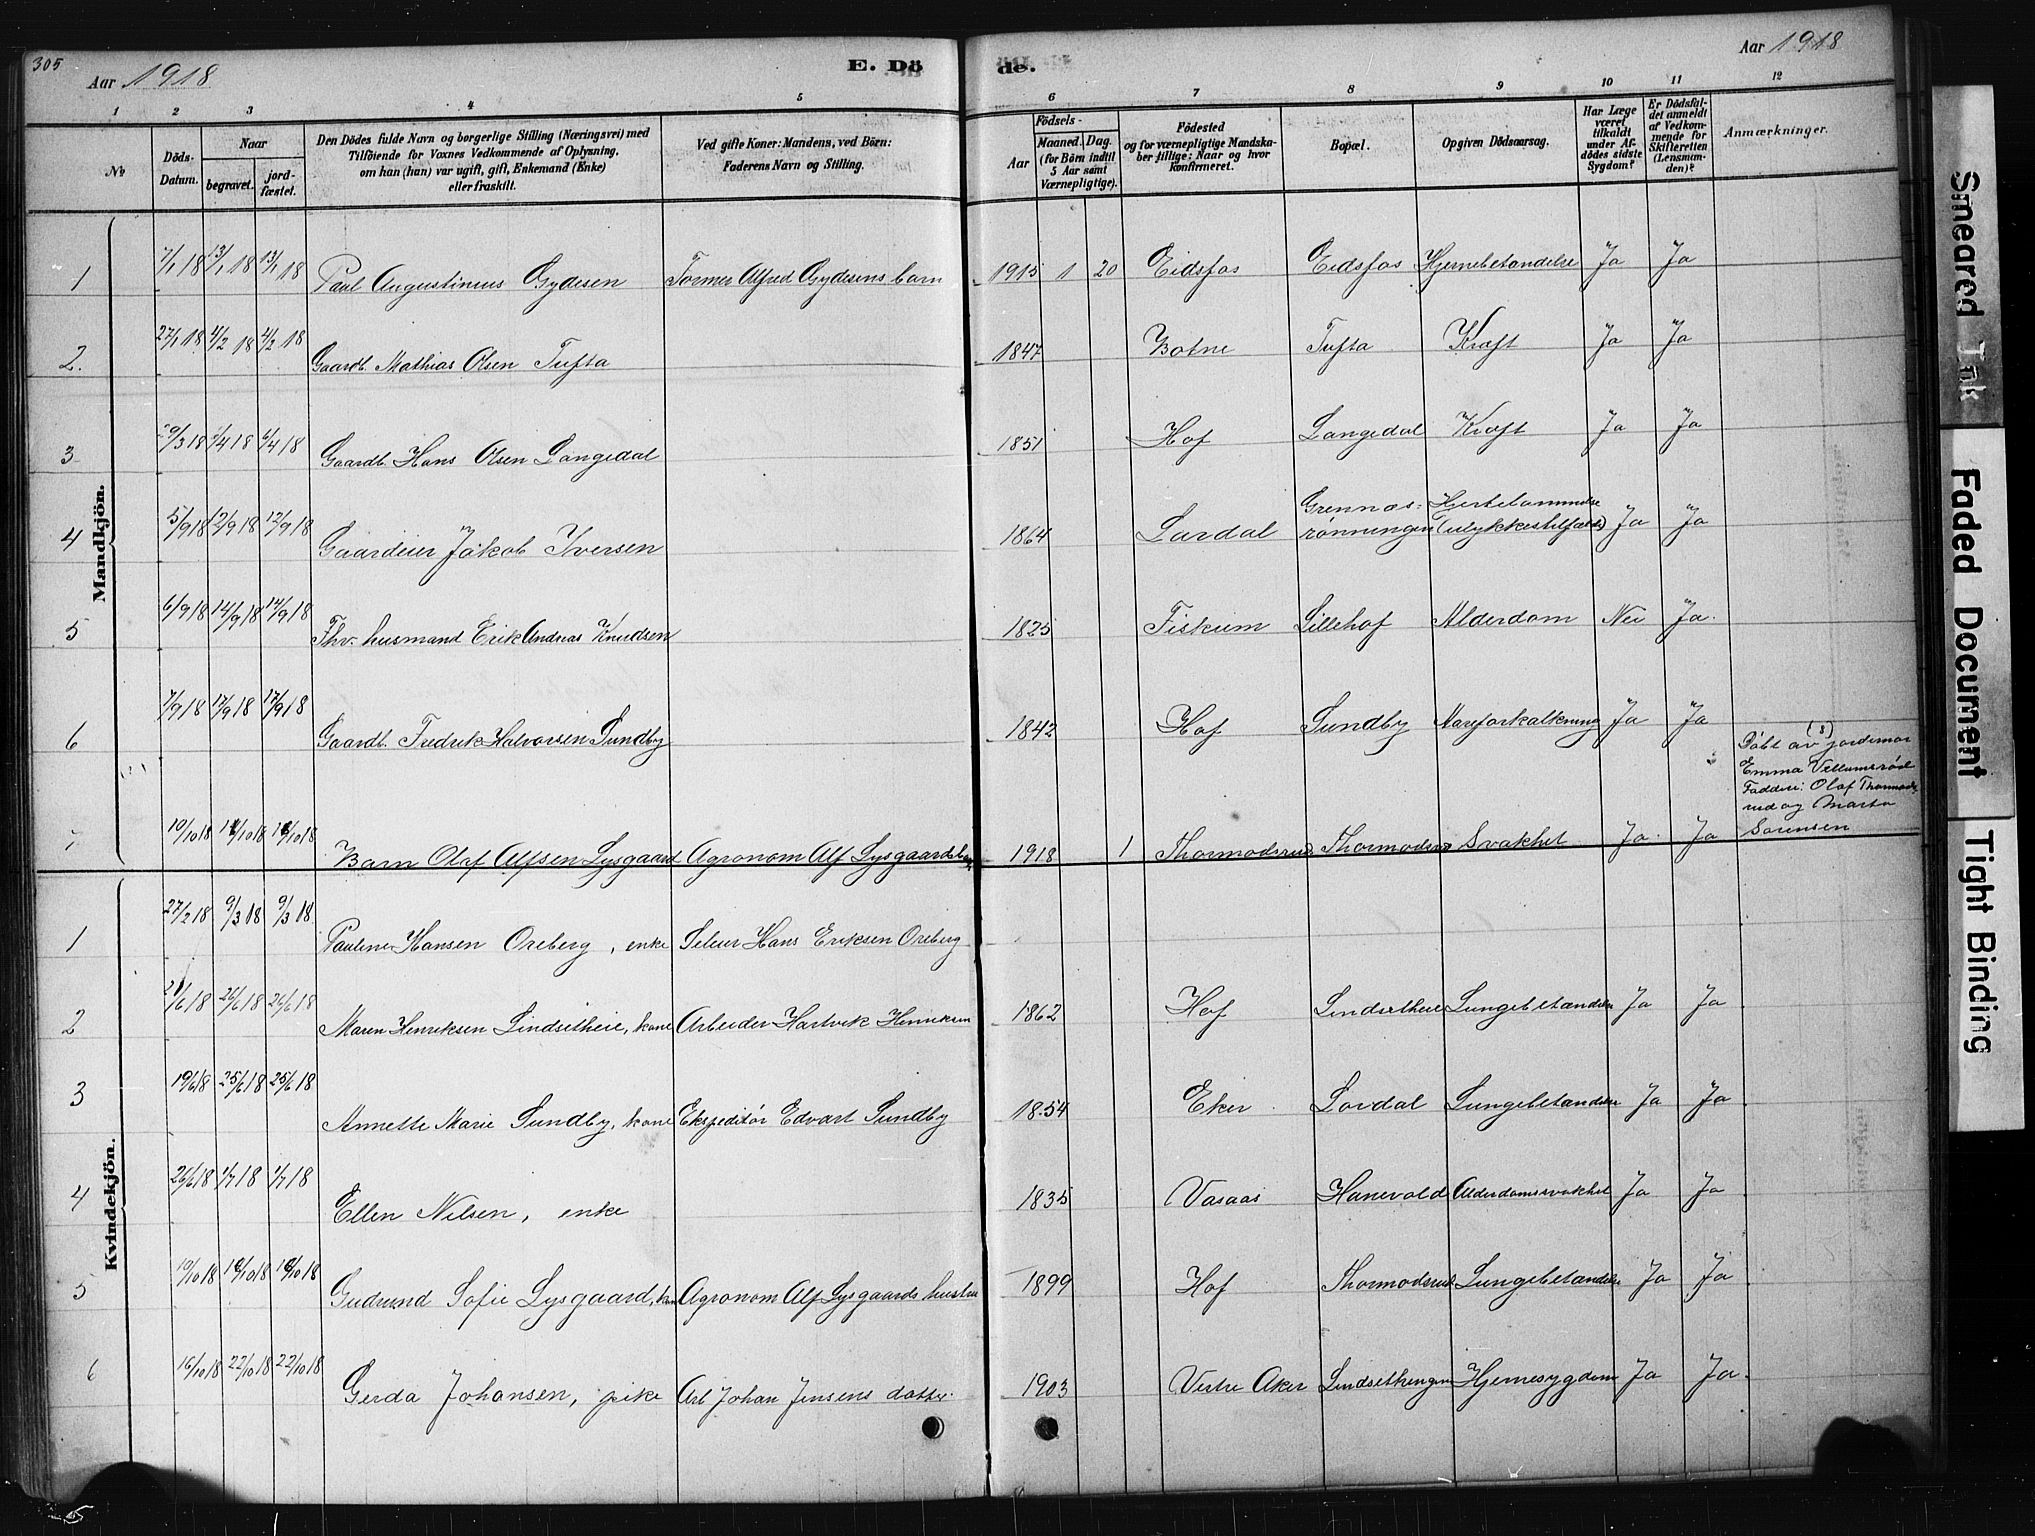 305
Aar 1918
E. Dö
de.
Aar 1918
1 2 3 4 5 6 7 8 9 10 11 12
No
Döds-
Datum.
Naar
begravet.
jord-
fæstet.
Den Dödes fulde Navn og borgerlige Stilling (Næringsvei) med
Tilföiende for Voxnes Vedkommende af Oplysning,
om han (hun) var ugift, gift, Enkemand (Enke)
eller fraskilt.
Ved gifte Koner: Mandens, ved Börn:
Faderens Navn og Stilling.
Födsels-
Aar
Maaned. Dag.
(for Börn indtil
5 Aar samt
Værnepligtige).
Födested
og for værnepligtige Mandska-
ber tillige: Naar og hvor
Konfirmeret.
Bopæl.
Opgiven Dödsaarsag.
Har Læge
været
tilkaldt
under Af-
dödes sidste
Sygdom?
Er Dödsfal-
det anmeldt
af Vedkom-
mende for
Skifteretten
(Lensman-
den)?
Anmærkninger.
Mandkjön.
1 7/1 18 13/1 18 13/1 18 Paul Augustinius Gydesen Former Alfred Gydesens barn 1915 1 20 Eidsfos Eidsfos Hjernebetændelse Ja Ja
2. 27/1 18 4/2 18 4/2 18 Gaardb. Mathias Olsen Tufta 1847 Botne Tufta Kræft Ja Ja
3 29/3 18 /4 18 6/4 18 Gaardb. Hans Olsen Langedal 1851 Hof Langedal Kræft Ja Ja
4 5/9 18 12/9 18 12/9 18 Gaardeier Jakob Iversen 1864 Lardal Grennes-
rønningen Hjertelammelse
(ulykkestilfælde) Ja Ja
5 6/9 18 14/9 18 14/9 18 Fhv. husmand Erik Andreas Knudsen 1825 Fiskum Lillehof Alderdom Nei Ja.
6 7/9 18 17/9 18 17/9 18 Gaardb. Fredrik Halvorsen Sundby 1842 Hof Sundby Aareforkalkning Ja Ja
7 10/10 18 18/10 18 18/10 18 Barn Olaf Alfsen Lysgaard Agronom Alf Lysgaards barn 1918 1 Thormodsrud Thormodsrud Svakhet Ja Ja
Døbt av jordemor
Emma Villumsrød
Faddere: Olaf Thormods-
rud og Marta
Sørensen
Kvindekjön.
1 27/2 18 9/3 18 9/3 18 Pauline Hansen Oreberg, enke Seleier Hans Eriksen Oreberg
2 21/6 18 26/6 18 26/6 18 Maren Henriksen Lindsetheie, kone Arbeider Hartvik Henriksen 1862 Hof Lindsetheie Lungebetændelse Ja Ja
3 19/6 18 25/6 18 25/6 18 Annette Marie Sundby, kone Ekspeditør Edvart Sundby 1854 Eker Lordal Lungebetændelse Ja Ja
4 26/6 18 1/7 18 1/7 18 Ellen Nilsen, enke 1835 Vasaas Hanevold Alderdomssvakhet Ja Ja
5 10/10 18 18/10 18 18/10 18 Gudrund Sofie Lysgaard, kone Agronom Alf Lysgaards hustru 1899 Hof Thormodsrud Lungebetændelse Ja Ja
6 16/10 18 22/10 18 22/10 18 Gerda Johansen, pike Arb Johan Jensens datter. 1903 Vestre Aker Lindsethengen Hjernesygdom Ja Ja.
Smeared Ink
Faded Document
Tight Binding